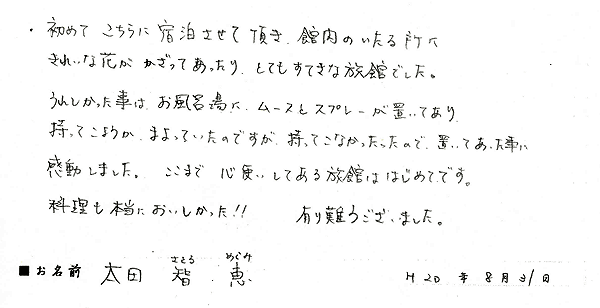 ・初めてこちらに宿泊させて頂き、館内のいたる所に
きれいな花がかざってあったり、とてもすてきな旅館でした。
うれしかった事は、お風呂場に、ムースもスプレーが置いてあり
持ってこようか、まよっていたのですが、持ってこなかったったので、置いてあった事に
感動しました。ここまで心使いしてある旅館ははじめてです。
料理も本当においしかった!! 有り難うございました。
さとる めぐみ
■お名前 太田 智 恵 H20年8月31日